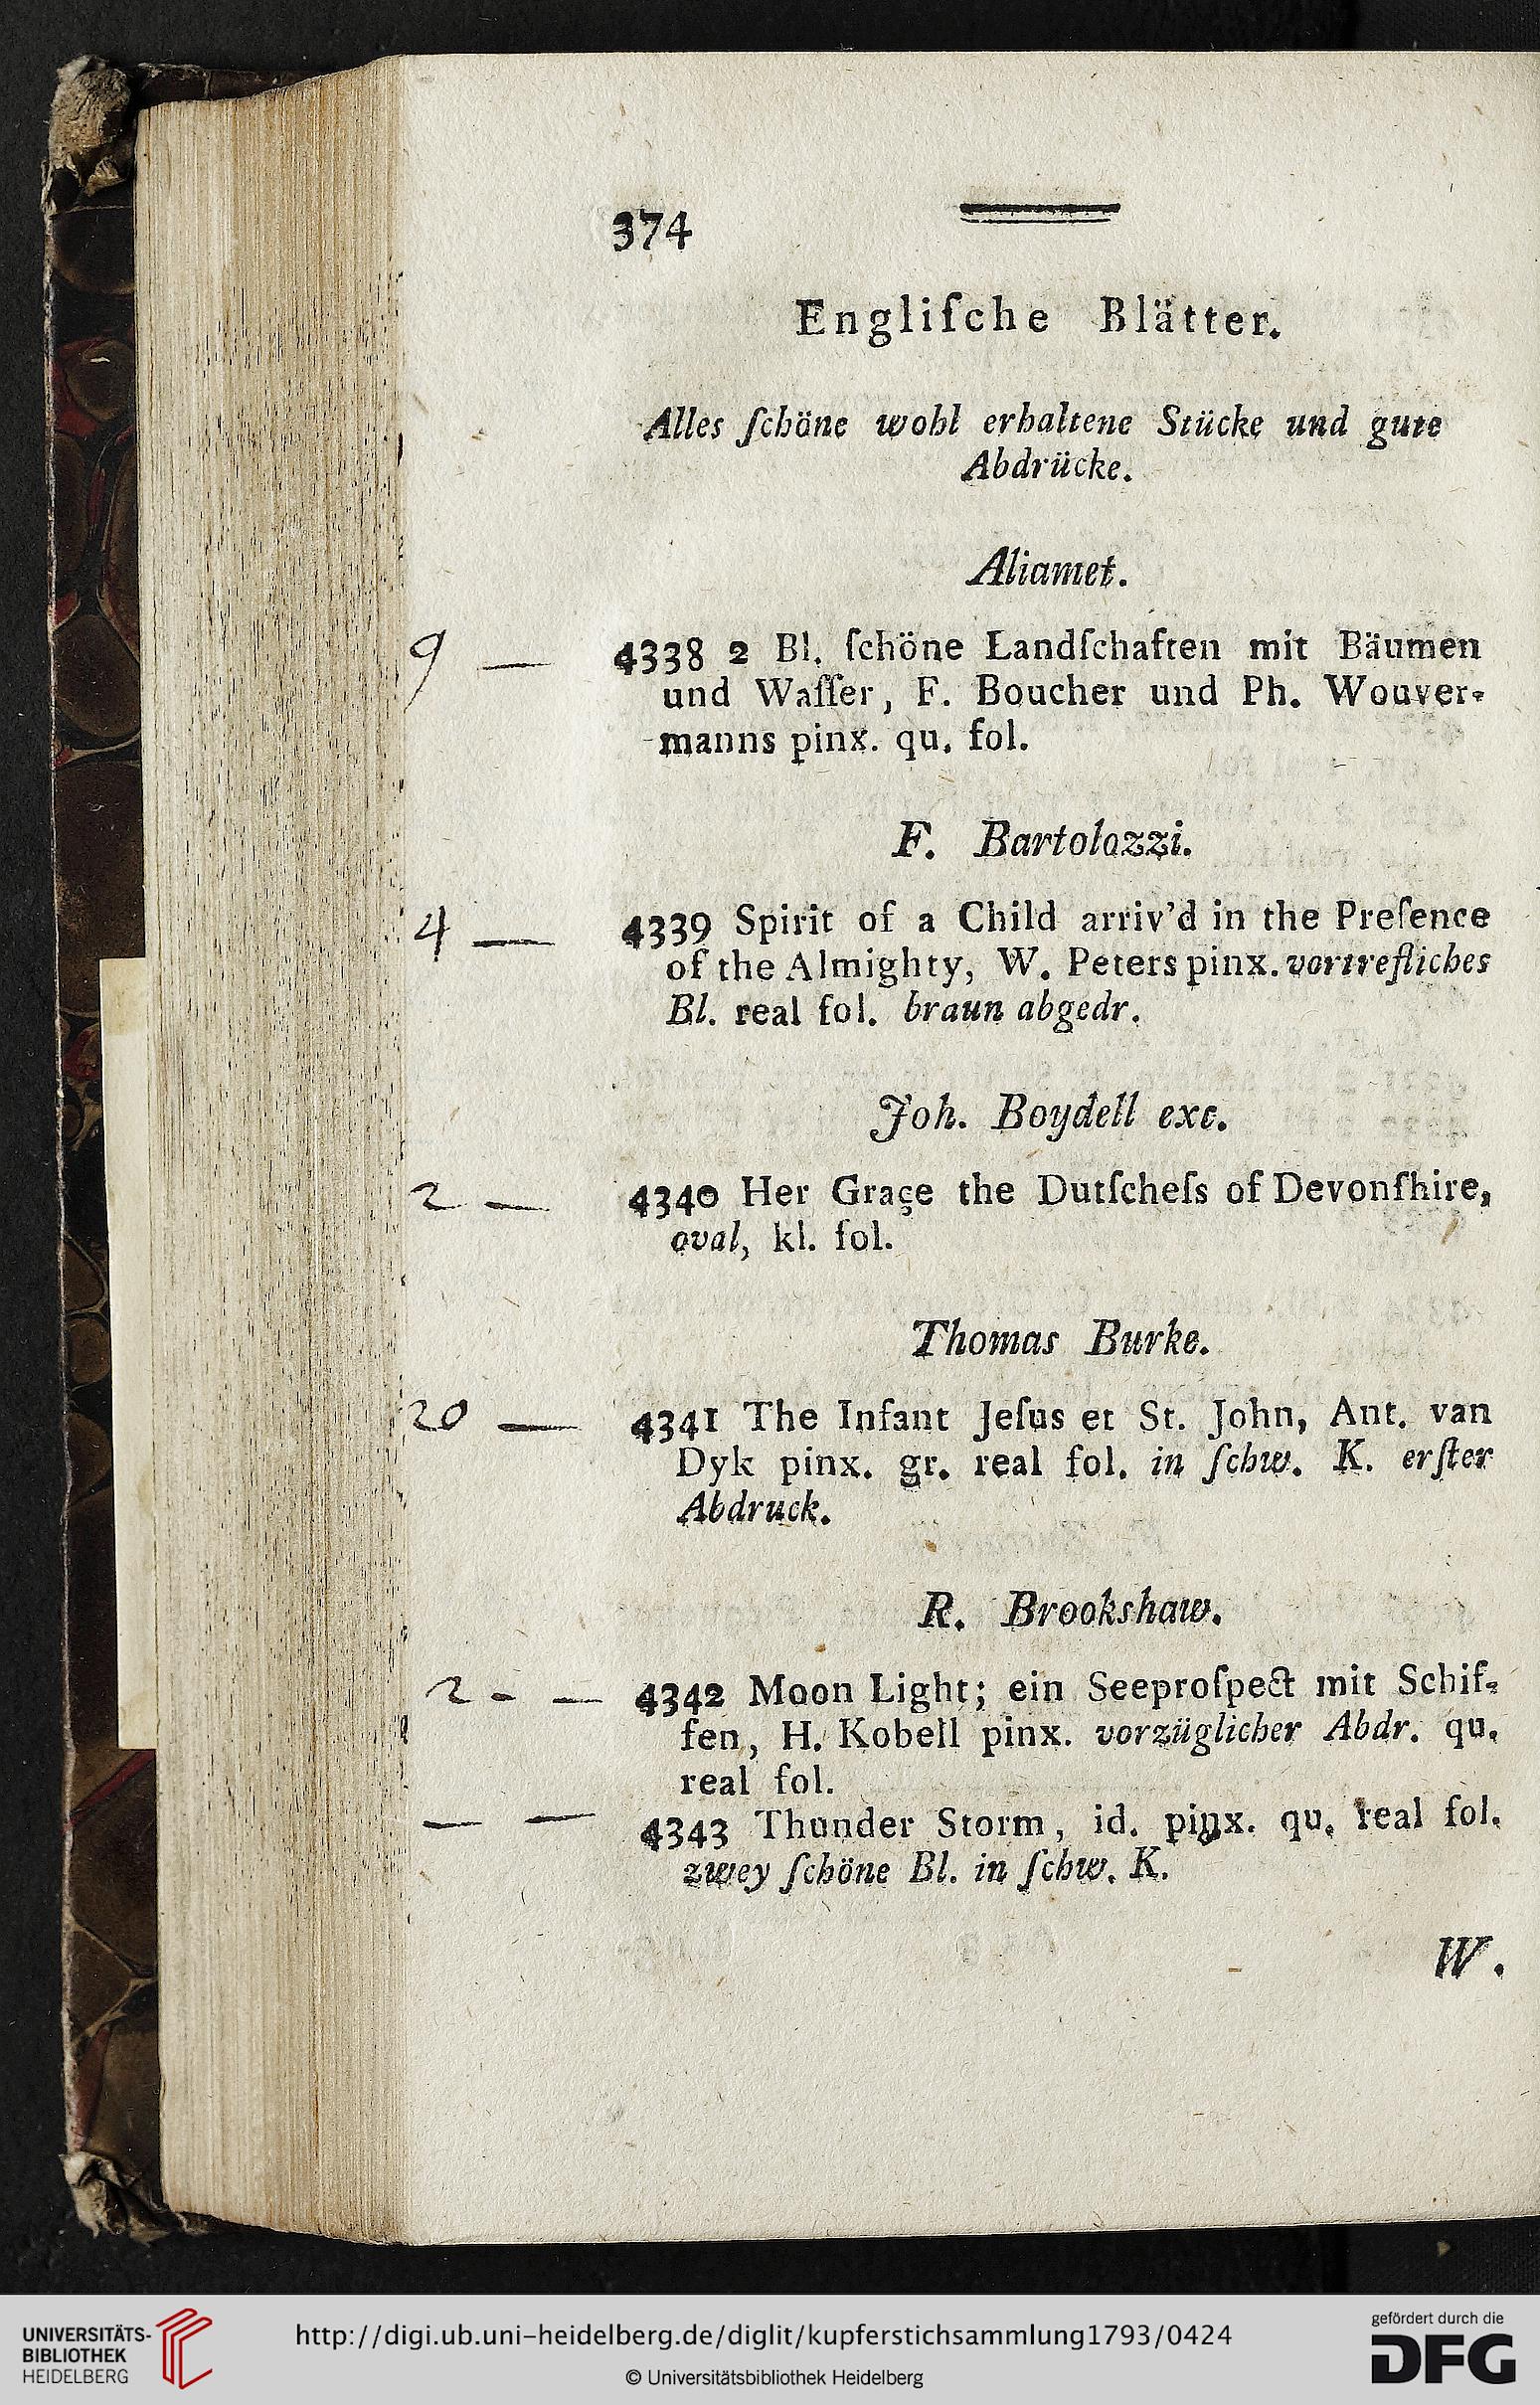 374
Engliſche Blätter.
Alles ſchöne wohl erhaltene Stücke und gute
Abdrücke.
Aliamet.
9 — 4338 2 Bl. ſchöne Landſchaften mit Bäumen
und Waſſer, F. Boucher und Ph. Wouver-
manns pinx. qu. fol.
F. Bartolozzi.
4 — 4339 Spirit of a Child arriv'd in the Preſence
of the Almighty, W. Peters pinx. vortrefliches
Bl. real fol. braun abgedr.
Joh. Boydell exc.
2 — 4340 Her Graçe the Dutſcheſs of Devonſhire,
oval, kl. fol.
Thomas Burke.
20 — 4341 The Infant Jeſus et St. John, Ant. van
Dyk pinx. gr. real fol. in ſchw. K. erſter
Abdruck.
R. Brookshaw.
2 - — 4342 Moon Light; ein Seeproſpect mit Schif-
fen, H. Kobell pinx. vorzüglicher Abdr. qu.
real fol.
— — 4343 Thunder Storm, id. pinx. qu. real fol.
zwey ſchöne Bl. in ſchw. K.
W.
UNIVERSITÄTS-
BIBLIOTHEK
HEIDELBERG
http://digi.ub.uni-heidelberg.de/diglit/kupferstichsammlung1793/0424
© Universitätsbibliothek Heidelberg
gefördert durch die
DFG